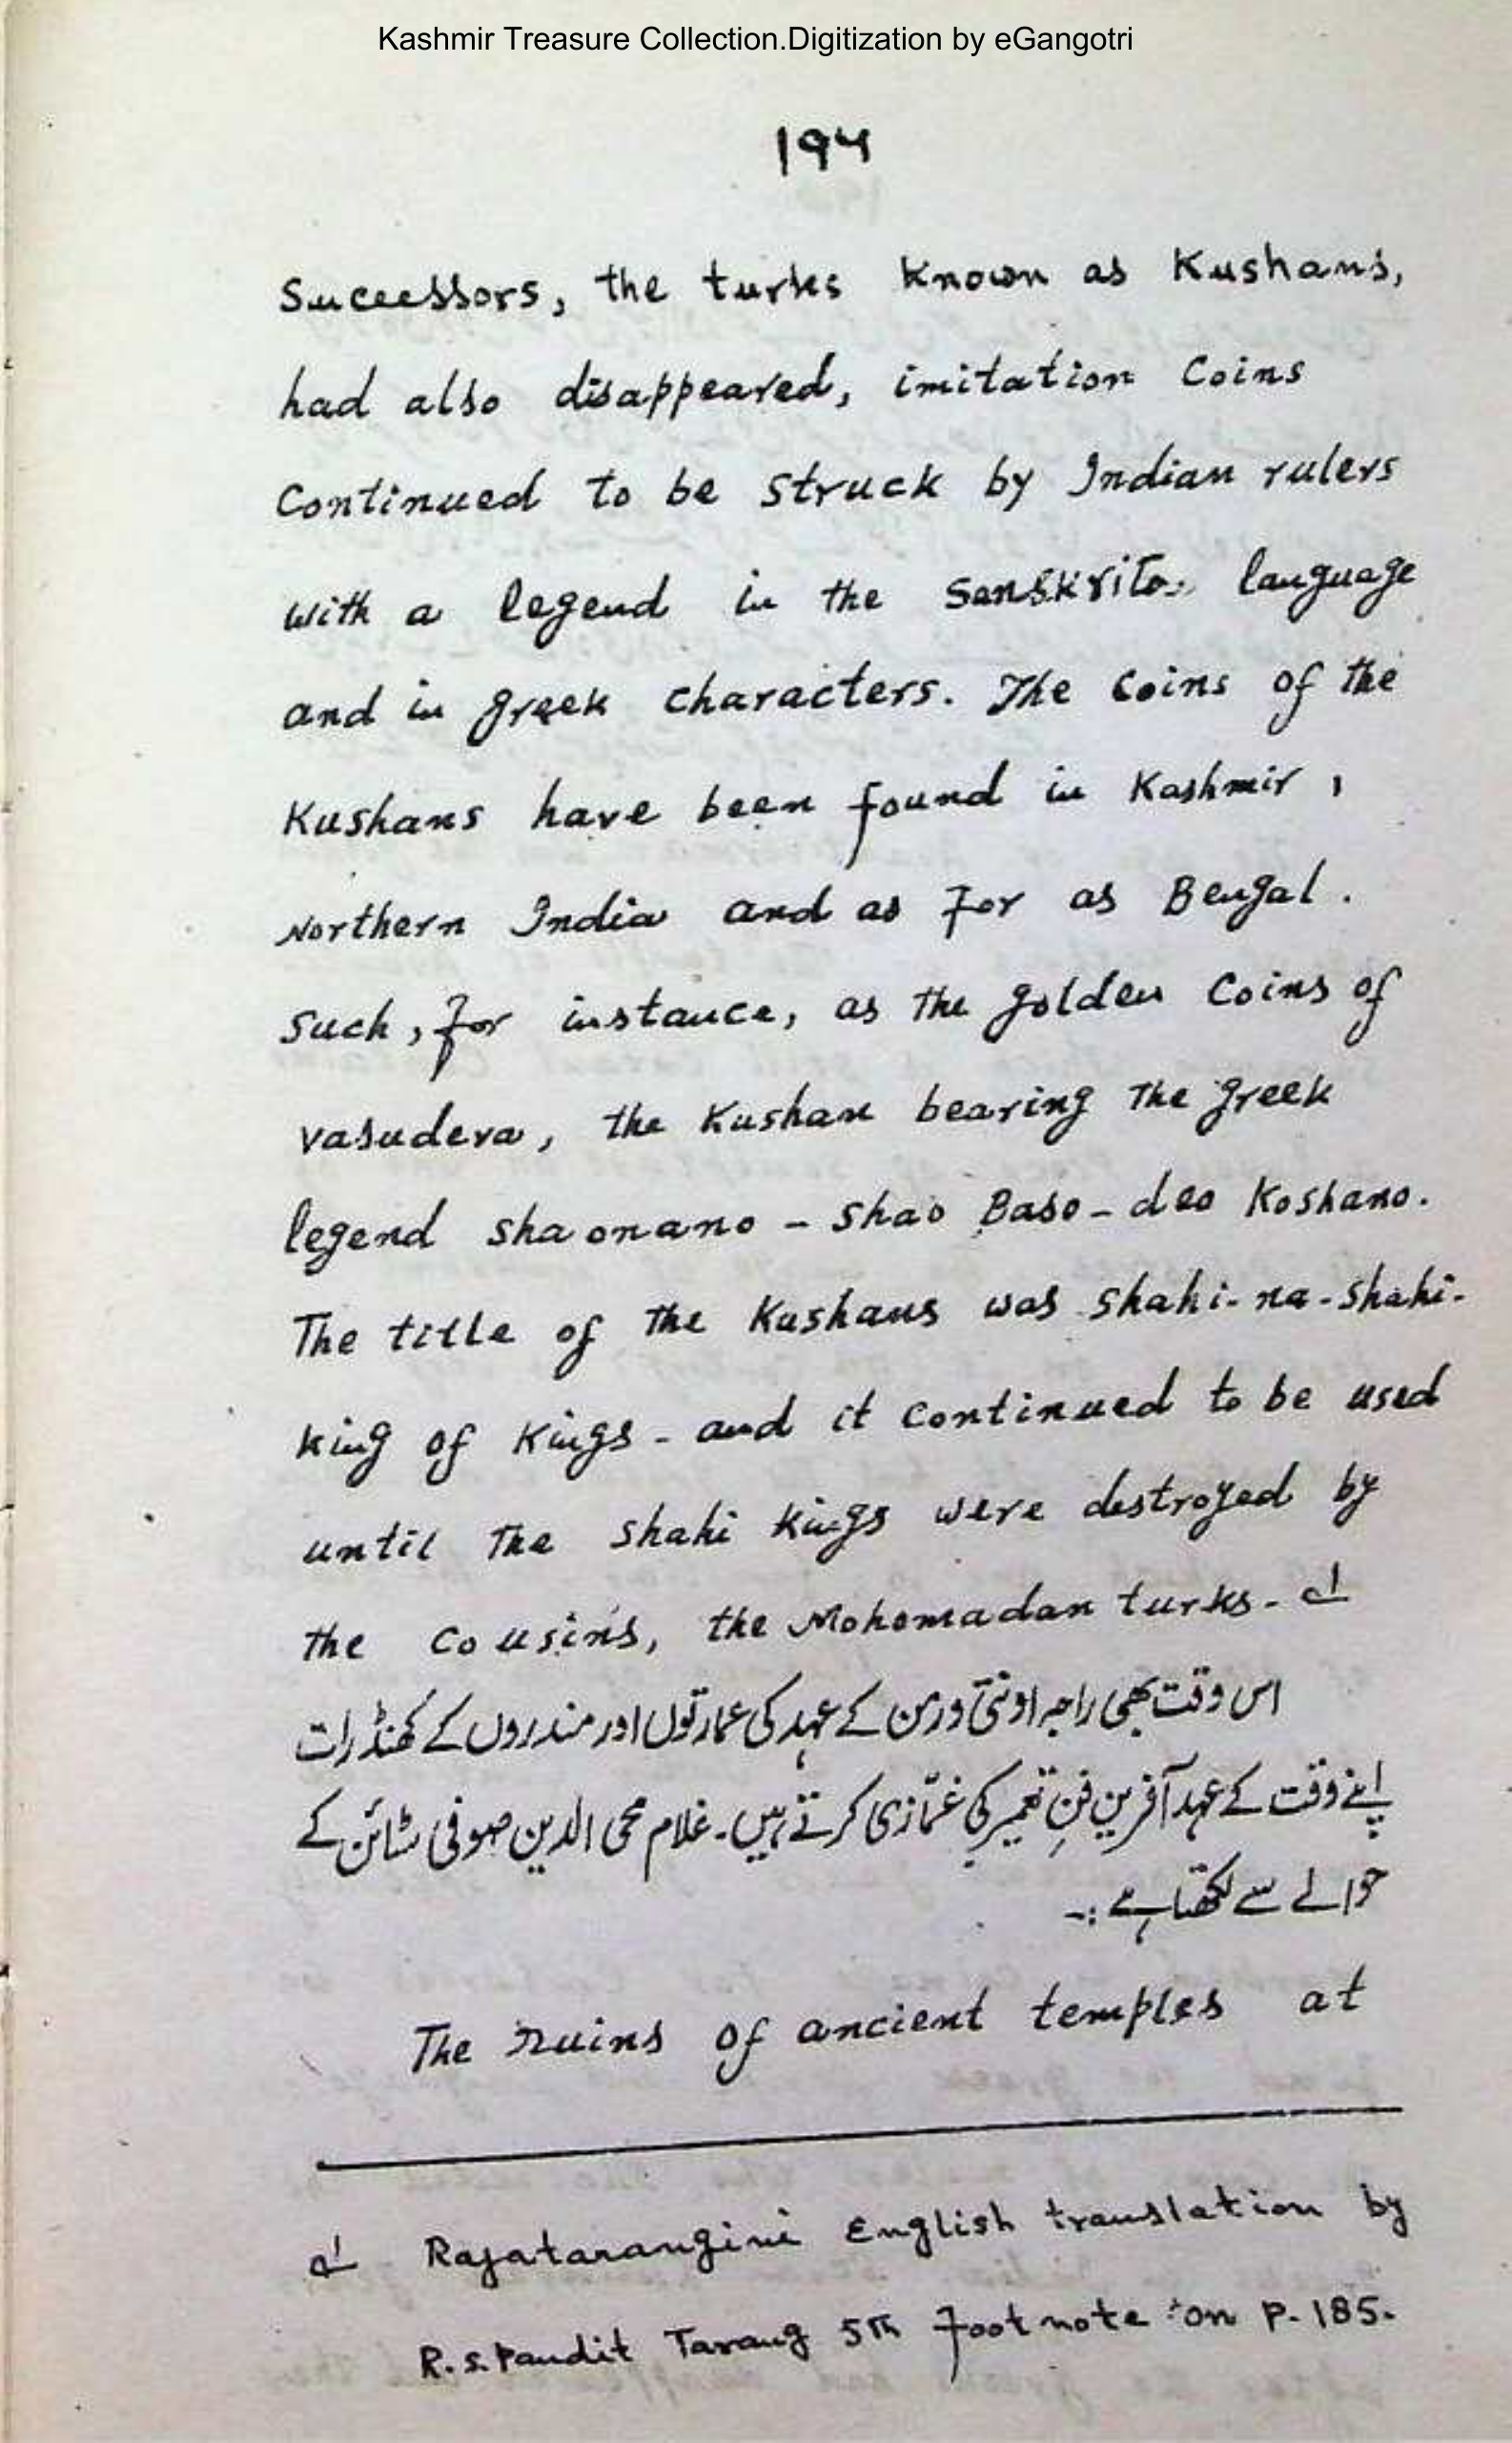 Kashmir Treasure Collection.Digitization by eGangotri
۱۹۴
Successors, the turks known as Kushans,
had also disappeared, imitation Coins
Continued to be struck by Indian rulers
with a legend in the Sanskrita language
and in greek characters. The coins of the
Kushans have been found in Kashmir,
Northern India and as for as Bengal.
Such, for instance, as the golden Coins of
vasudeva, the Kushan bearing The greek
legend shaonano - shao Baso-deo Koshano.
The title of the Kushans was shahi-na-shahi-
king of Kings - and it continued to be used
until The shahi kings were destroyed by
the cousins, the Mohomadan turks- ۱؎
اس وقت بھی راجہ اونتی ورمن کے عہد کی عمارتوں اور مندروں کے کھنڈرات
اپنے وقت کے عہد آفرین فنِ تعمیر کی غمّازی کرتے ہیں۔ غلام محی الدین صوفی سٹائن کے
حوالے سے لکھتا ہے :۔
The ruins of ancient temples at
۱؎ Rajatarangini English translation by
R.S. Pandit Tarang 5th footnote on P-185.